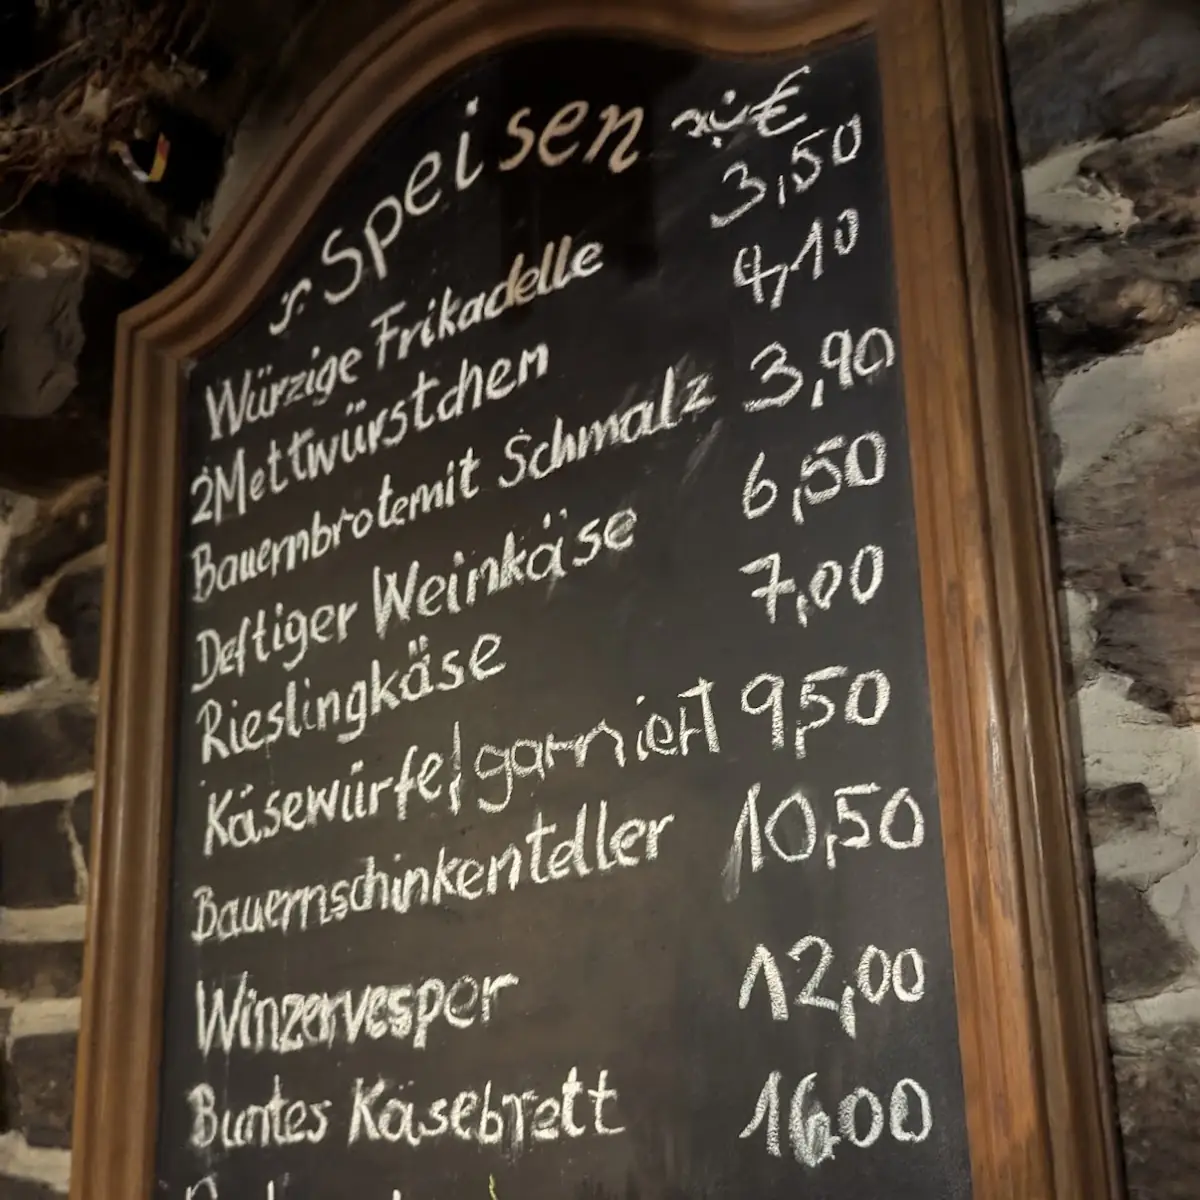 Speisen €
Würzige Frikadelle 3,50
2 Mettwürstchen 4,10
Bauernbrote mit Schmalz 3,90
Deftiger Weinkäse 6,50
Rieslingkäse 7,00
Käsewürfel garniert 9,50
Bauernschinkenteller 10,50
Winzervesper 12,00
Buntes Käsebrett 16,00